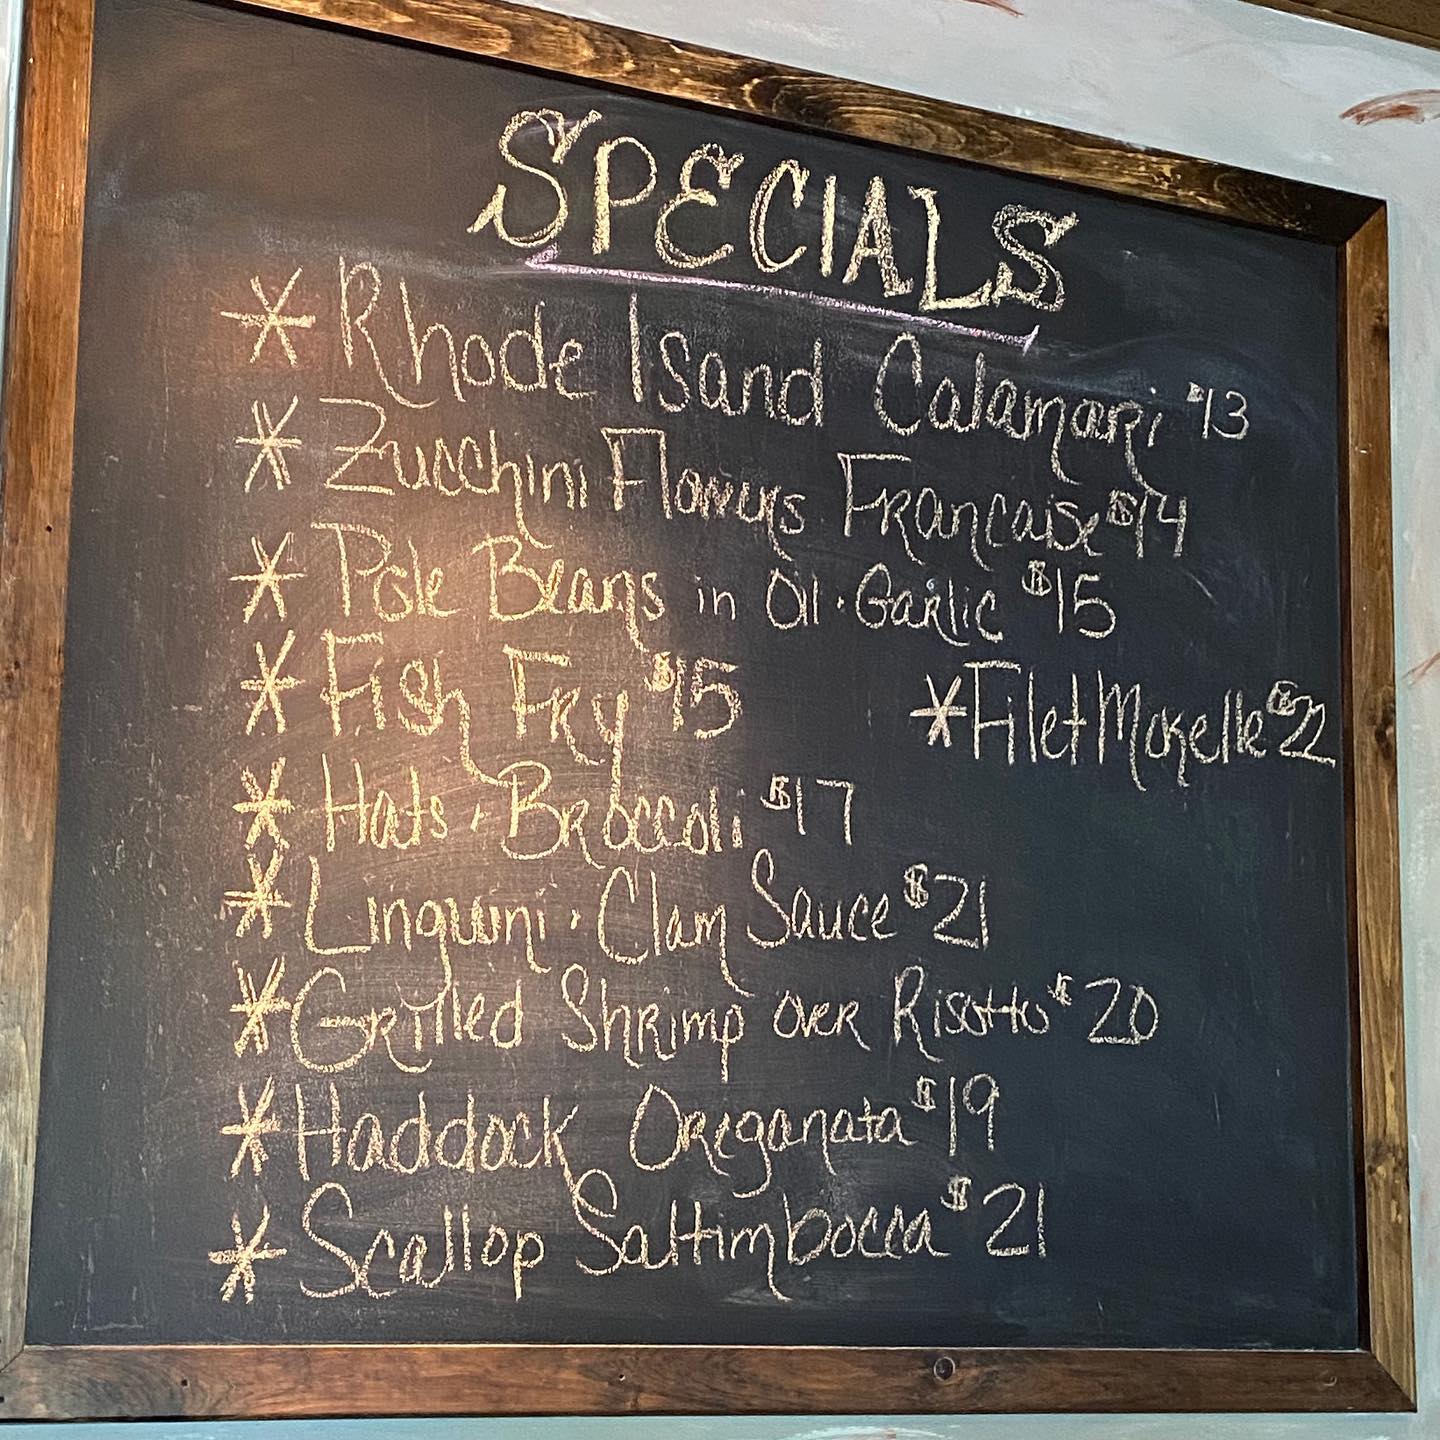 SPECIALS
* Rhode Island Calamari $13
* Zucchini Flowers Francaise $14
* Pole Beans in Oil · Garlic $15
* Fish Fry $15
* Filet Morelle $22
* Hats · Broccoli $17
* Linguini · Clam Sauce $21
* Grilled Shrimp over Risotto $20
* Haddock Oreganata $19
* Scallop Saltimbocca $21